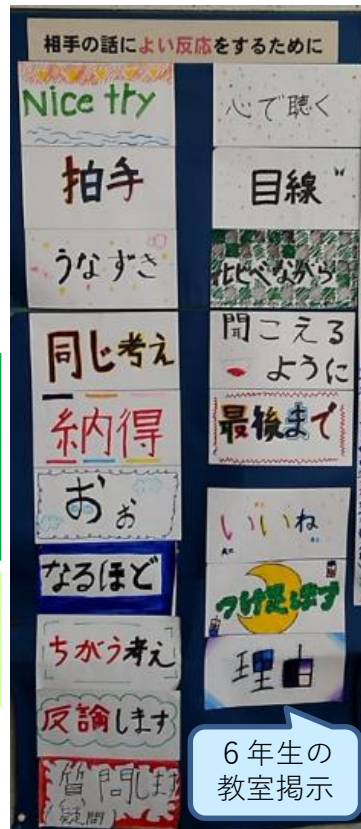 相手の話によい反応をするために
Nice try
拍手
うなずき
同じ考え
納得
おぉ
なるほど
ちがう考え
反論します
質問します
(疑問)
心で聴く
目線
比べながら
聞こえる
ように
最後まで
いいね
つけ足します
理由
6年生の
教室掲示